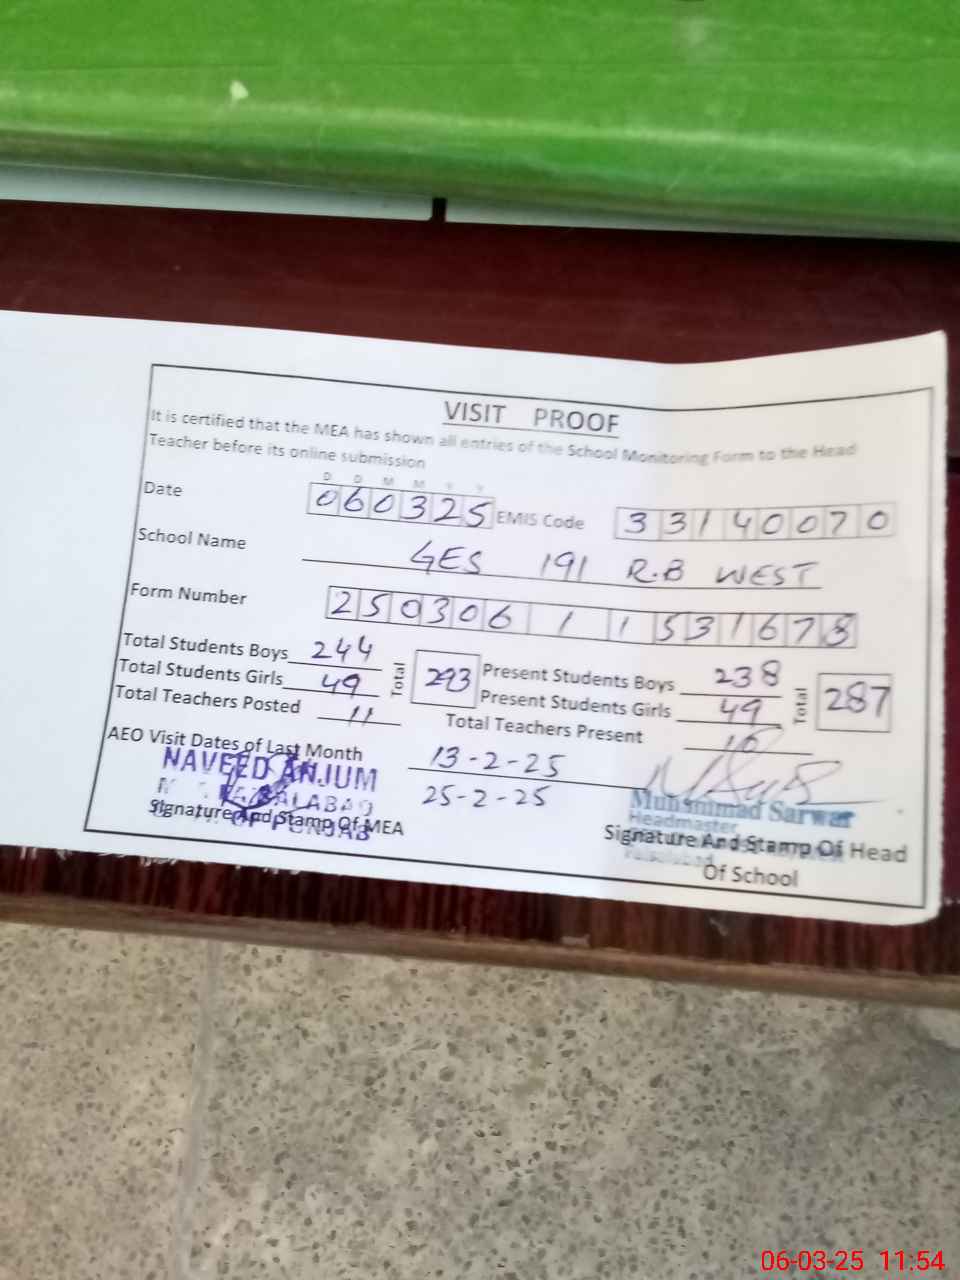 VISIT PROOF
It is certified that the MEA has shown all entries of the School Monitoring Form to the Head
Teacher before its online submission
D D M M Y Y
Date 060325 EMIS Code 33140070
School Name GES 191 R.B WEST
Form Number 250306 1 1 531678
Total Students Boys 244 Total 293 Present Students Boys 238 Total 287
Total Students Girls 49 Present Students Girls 49
Total Teachers Posted 11 Total Teachers Present 10
AEO Visit Dates of Last Month 13-2-25
25-2-25
NAVEED ANJUM
OF PUNJAB
Signature And Stamp Of MEA
Muhammad Sarwar
Headmaster
Faisalabad
Signature And Stamp Of Head
Of School
06-03-25 11:54